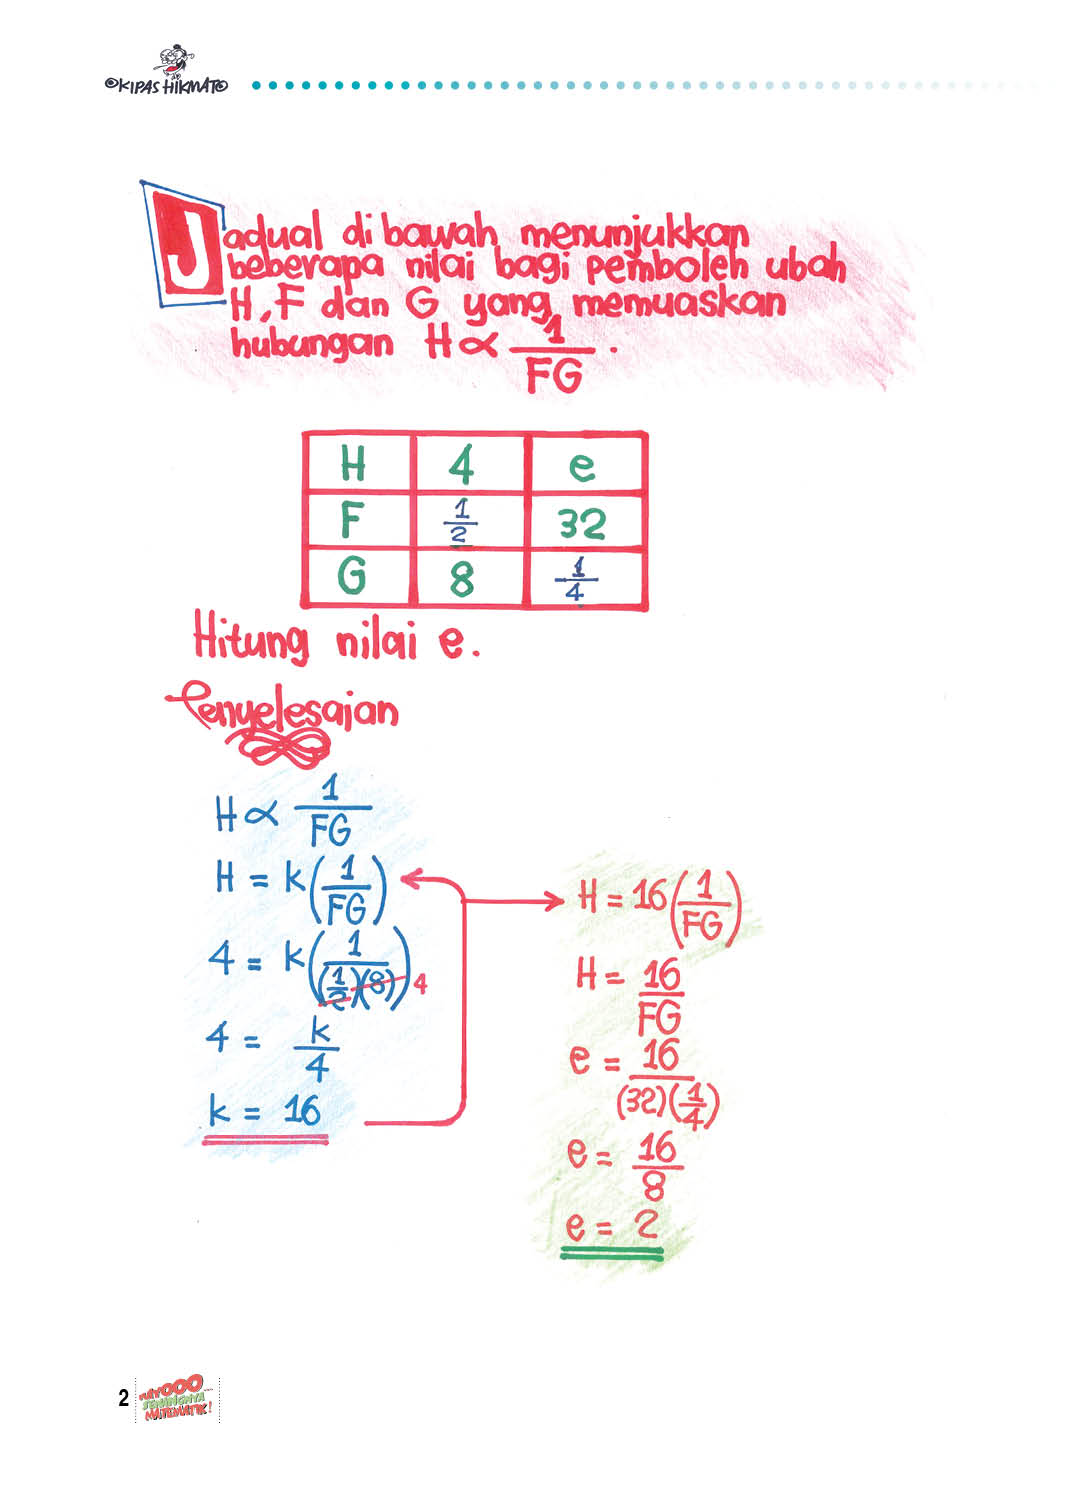 ©KIPAS HIKMAT©
Jadual di bawah menunjukkan
beberapa nilai bagi pemboleh ubah
H, F dan G yang memuaskan
hubungan H ∝ 1/FG .
H 4 e
F 1/2 32
G 8 1/4
Hitung nilai e.
Penyelesaian
H ∝ 1/FG
H = k(1/FG)
4 = k(1/(1/2)(8)) 4
4 = k/4
k = 16
H = 16(1/FG)
H = 16/FG
e = 16/(32)(1/4)
e = 16/8
e = 2
2
SENANGNYA
MATEMATIK!